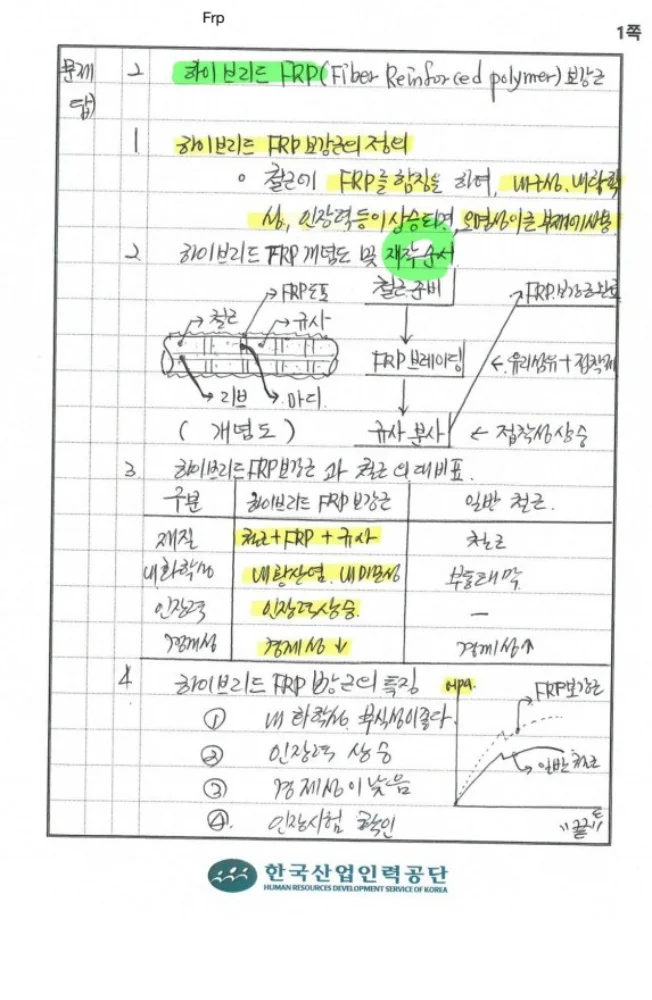 Frp
1쪽
문제 2 하이브리드 FRP(Fiber Reinforced polymer)보강근
답)
1 하이브리드 FRP보강근의 정의
◦ 철근에 FRP를 함침을 하여, 내구성, 내화학
성, 인장력등이 상승되며
2 하이브리드 FRP 개념도 및 제작순서
철근준비
FRP브레이딩 ← 유리섬유+접착제
규사 분사 ← 접착성 상승
FRP보강근완료
철근
FRP도포
규사
리브
마디
( 개념도 )
3 하이브리드FRP보강근 과 철근의 대비표.
구분 하이브리드 FRP보강근 일반 철근.
재질 철근+FRP + 규사 철근
내화학성 내황산염, 부동태막
인장력 인장력상승. —
경제성 경제성↓ 경제성↑
4 하이브리드 FRP 보강근의 특징
① 내화학성, 부식성이좋다.
② 인장력 상승
③ 경제성이낮음
④ 인장시험 확인
Mpa.
FRP보강근
일반철근
"끝"
한국산업인력공단
HUMAN RESOURCES DEVELOPMENT SERVICE OF KOREA